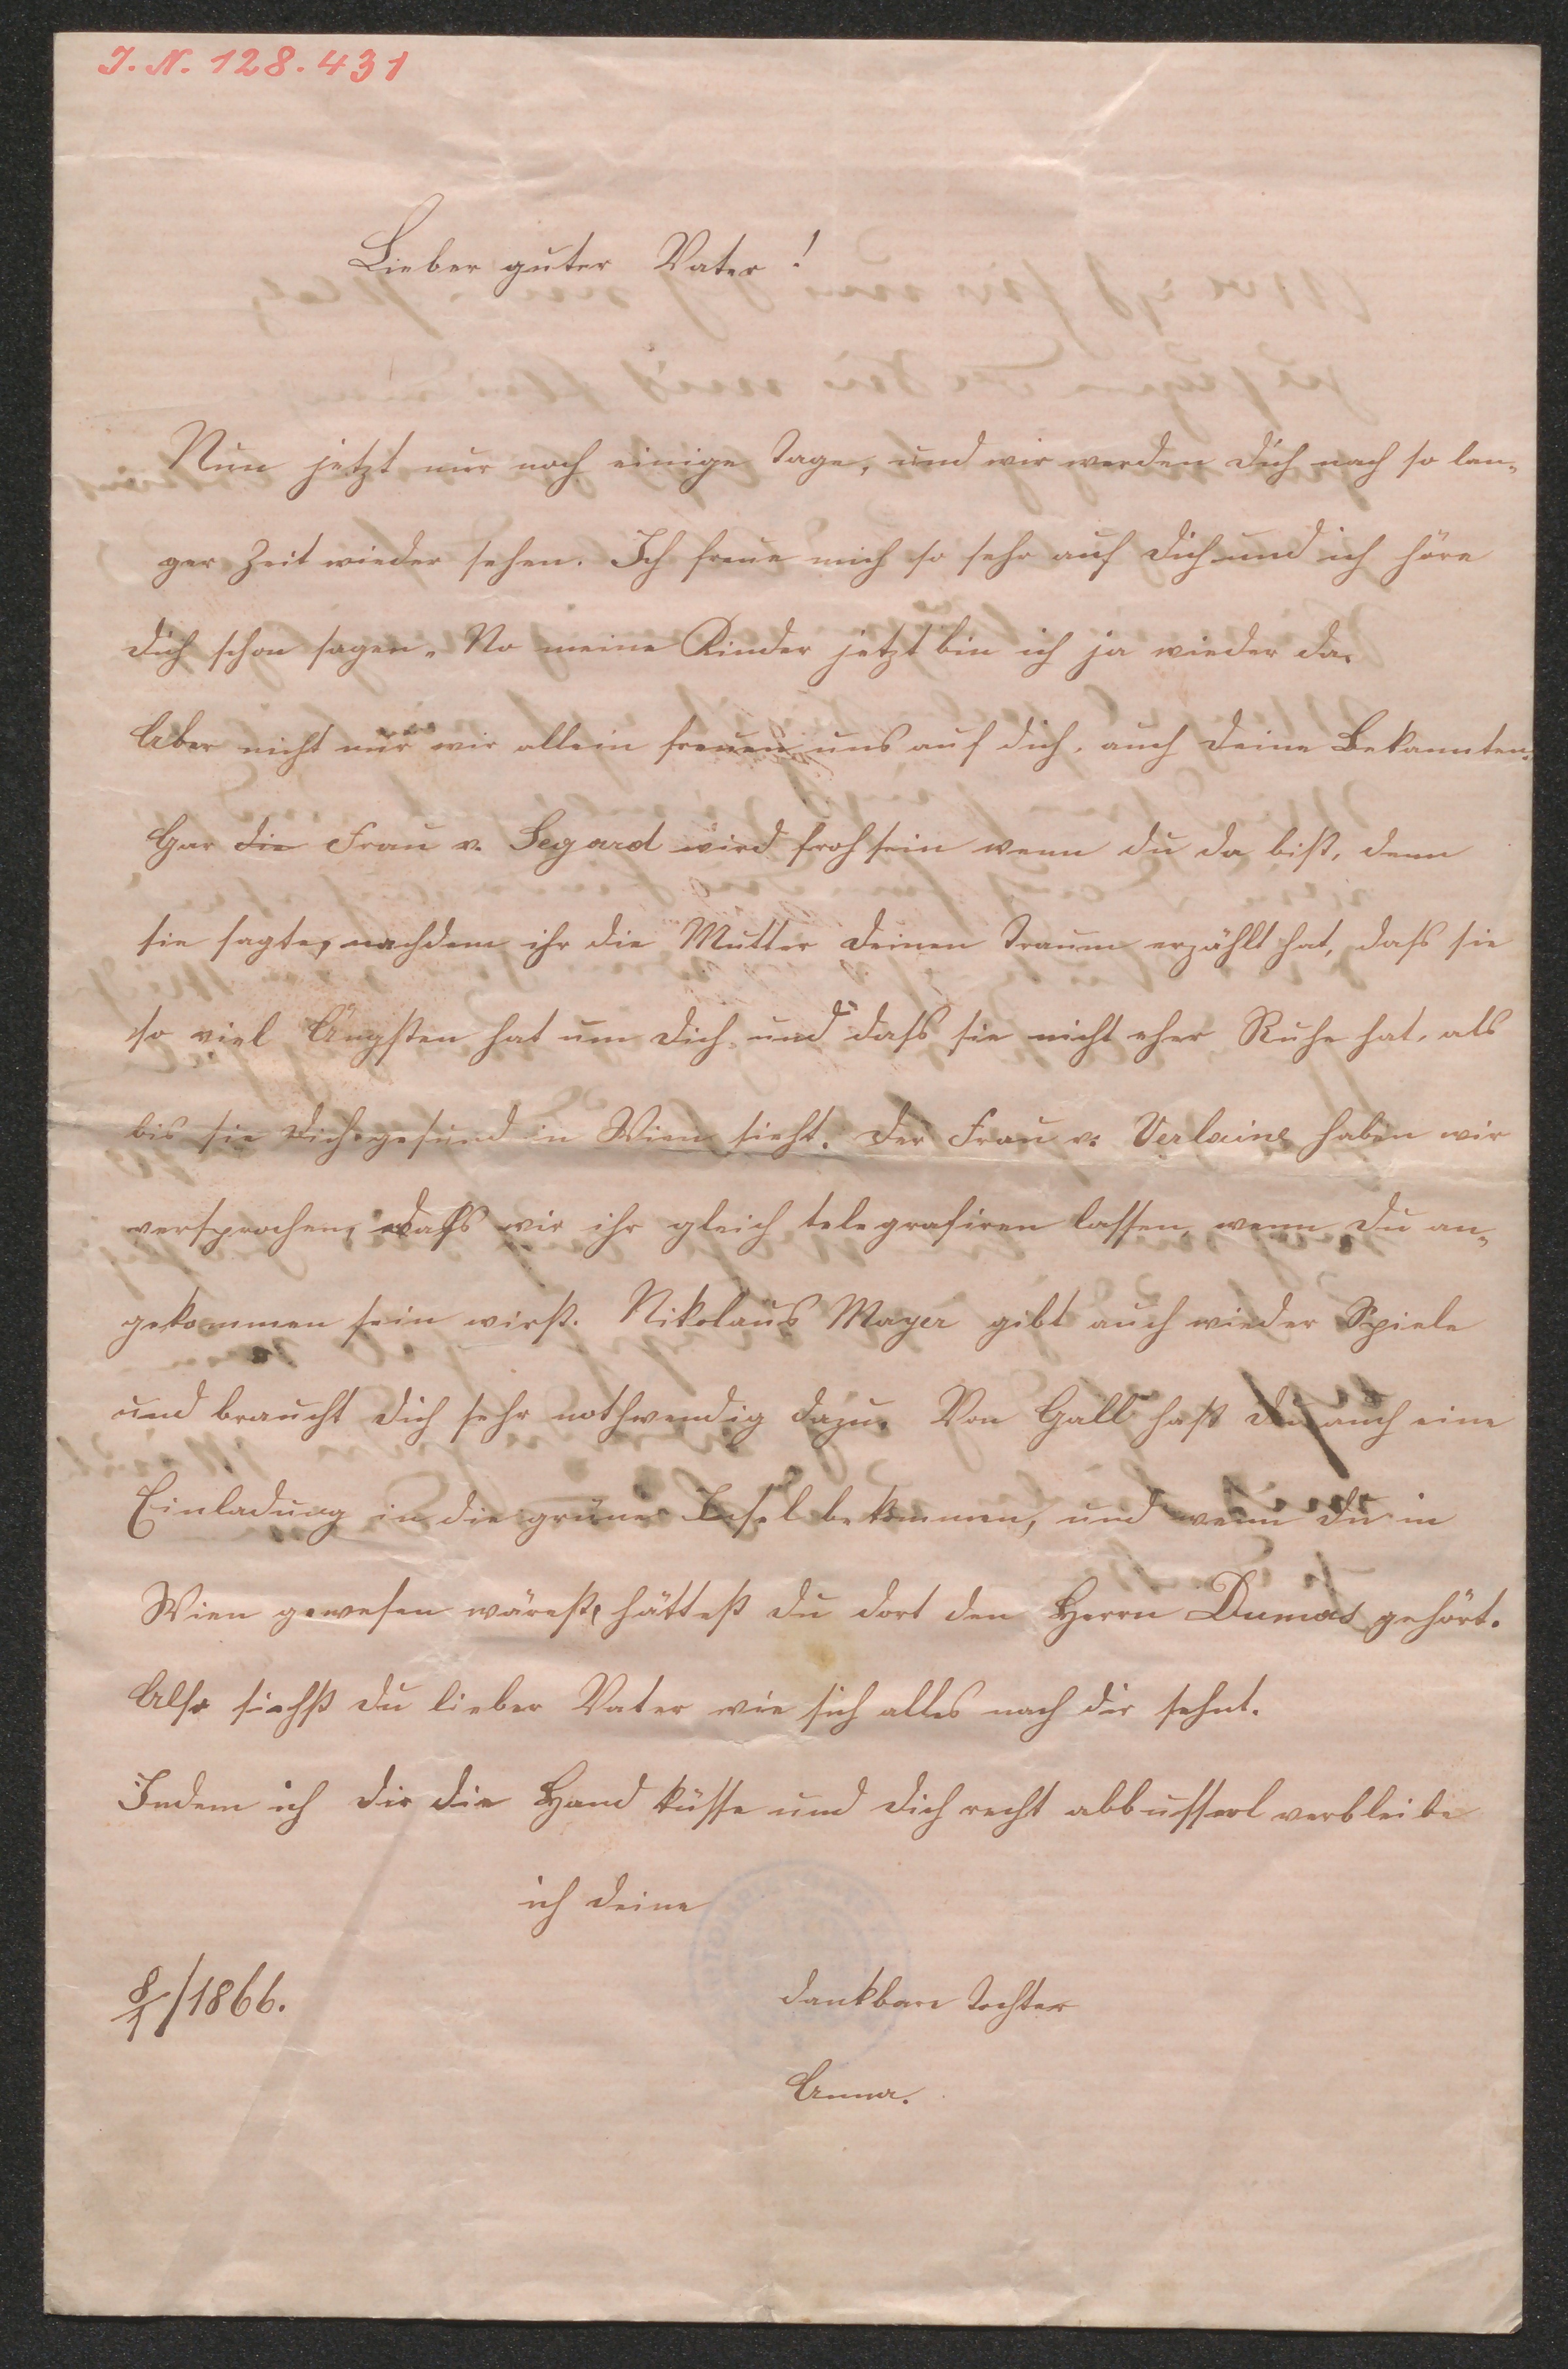 I. N. 128.431
Lieber guter Vater!
Nun jetzt nur noch einige Tage, und wir werden dich nach so lan-
ger Zeit wieder sehen. Ich freue mich so sehr auf dich und ich höre
dich schon sagen „ No meine Kinder jetzt bin ich ja wieder da.
Aber nicht nur wir allein freuen uns auf dich, auch deine Bekannten.
Gar die Frau v. Segard wird froh sein wenn du da bist, denn
sie sagte, nachdem ihr die Mutter deinen Traum erzählt hat, dass sie
so viel Ängsten hat um dich und dass sie nicht eher Ruhe hat, als
bis sie dich gesund in Wien sieht. Der Frau v. Verlaine haben wir
versprochen, dass wir ihr gleich telegrafiren lassen, wenn du an-
gekommen sein wirst. Nikolaus Mayer gibt auch wieder Spiele
und braucht dich sehr nothwendig dazu. Von Gall hast du auch eine
Einladung in die grüne Insel bekommen, und wenn du in
Wien gewesen wärest, hättest du dort den Herrn Dumas gehört.
Also siehst du lieber Vater wie sich alles nach dir sehnt.
Indem ich dir die Hand küsse und dich recht abbusserl verbleibe
ich deine
8/1/1866.
dankbare Tochter
Anna.